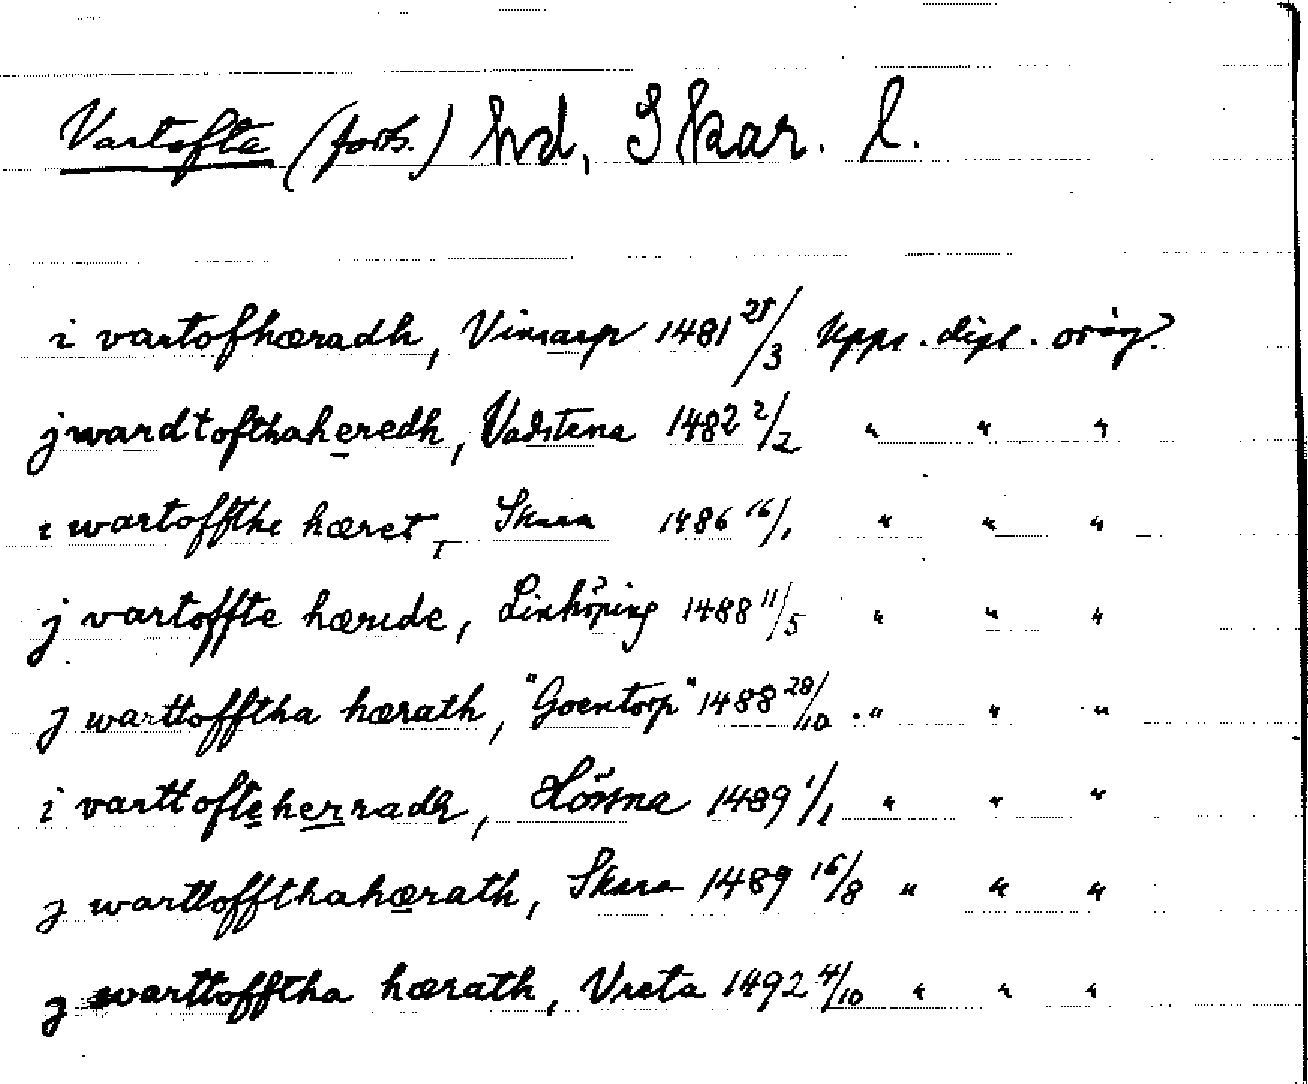 Vartofta (forts.) hd, Skar. l.
i vartofhæradh, Vinsarp 1481 25/3 Upps. dipl. orig?
j wardtofthaheredh, Vadstena 1482 2/2 " " "
i wartoffthe hæret, Skara 1486 16/1 " " "
j vartoffte hæride, Linköping 1488 11/5 " " "
j warttofftha hærath, "Goentorp" 1488 28/10 . " " "
i varttofteherradh, Hössna 1489 1/1 " " "
j warttoffthahærath, Skara 1489 16/8 " " "
j warttofftha hærath, Vreta 1492 4/10 " " "